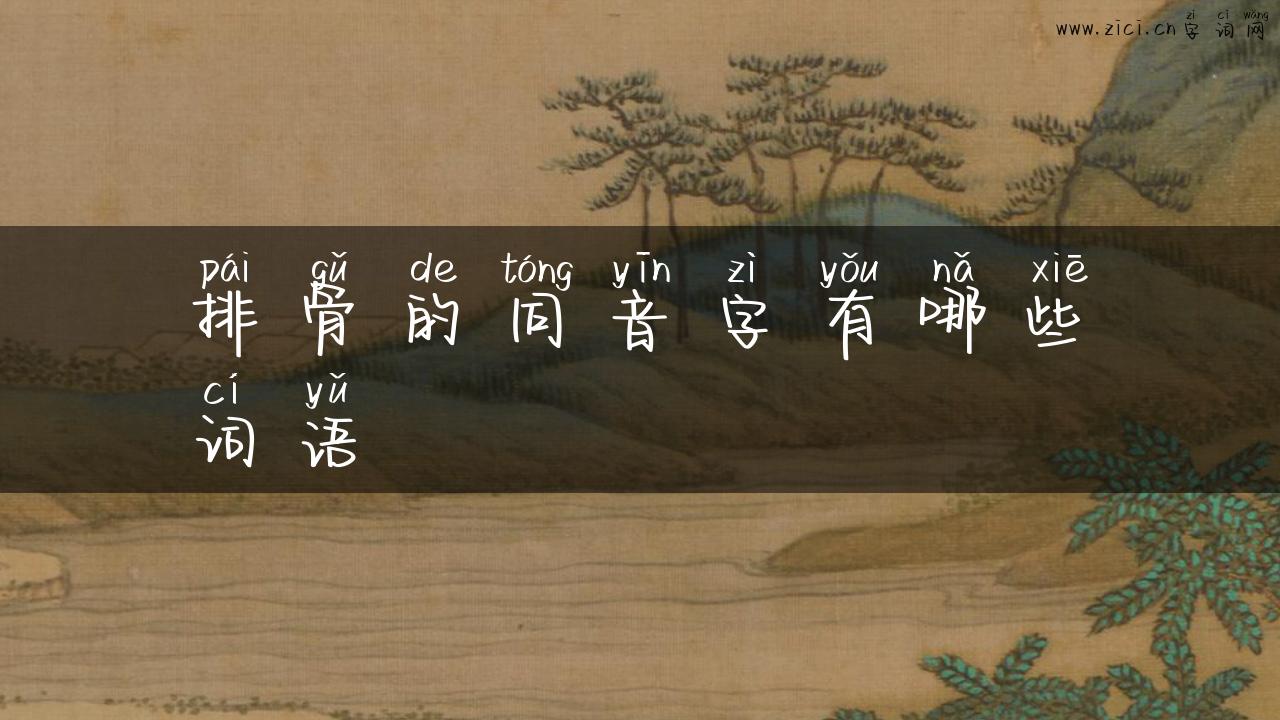 zì cí wǎng
www.zici.cn 字词网
pái gǔ de tóng yīn zì yǒu nǎ xiē
排骨的同音字有哪些
cí yǔ
词语